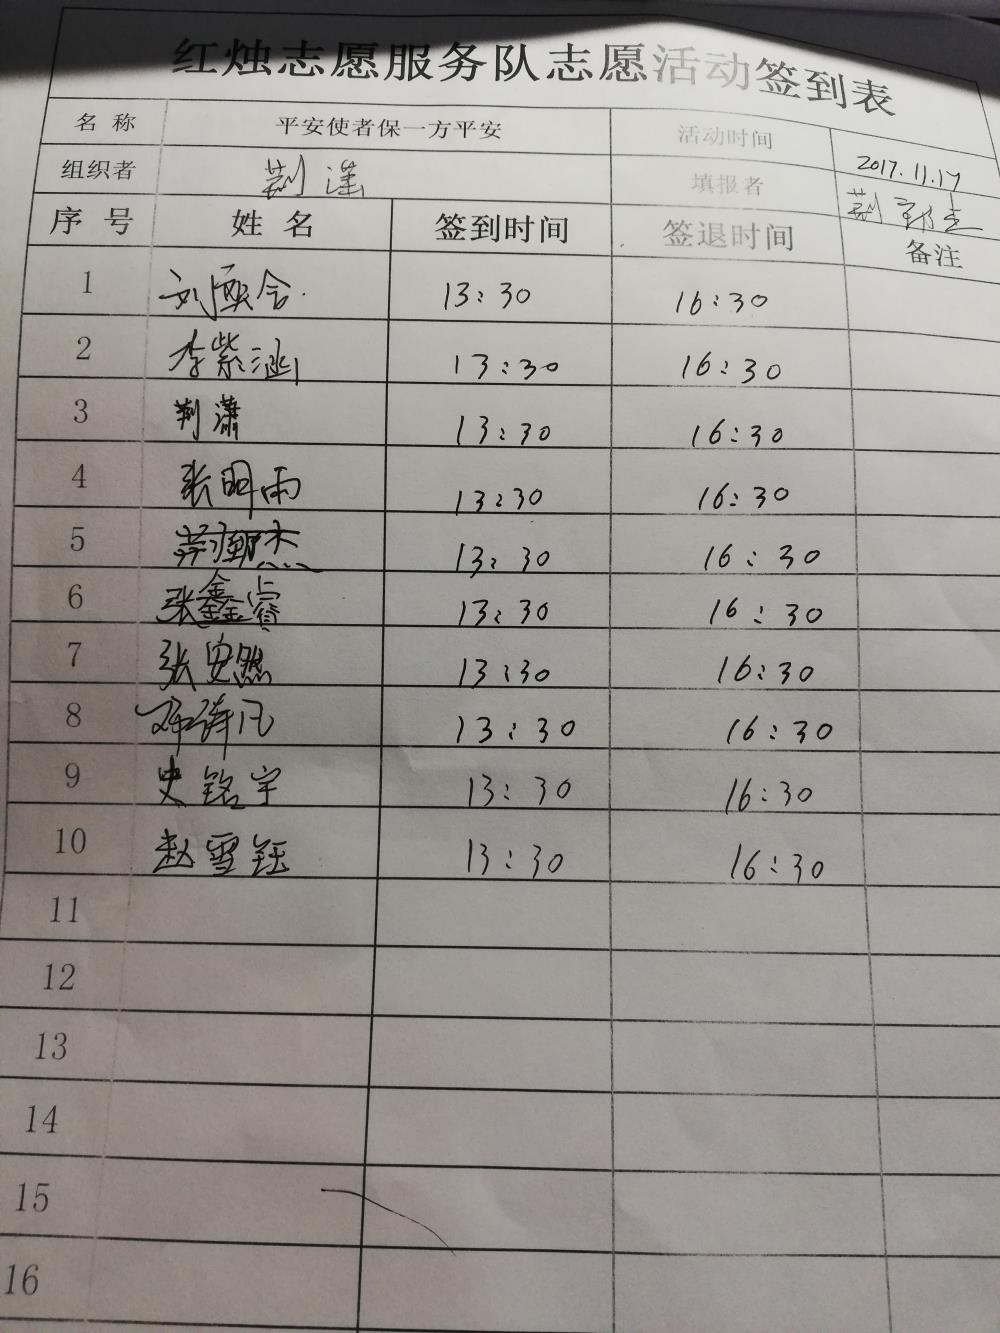 红烛志愿服务队志愿活动签到表
名 称 平安使者保一方平安 活动时间 2017.11.17
组织者 荆 填报者 荆
序 号 姓 名 签到时间 签退时间 备注
1 刘 含 13:30 16:30
2 李紫涵 13:30 16:30
3 荆潇 13:30 16:30
4 张明雨 13:30 16:30
5 13:30 16:30
6 张鑫睿 13:30 16:30
7 张安然 13:30 16:30
8 13:30 16:30
9 史铭宇 13:30 16:30
10 赵雪钰 13:30 16:30
11
12
13
14
15
16